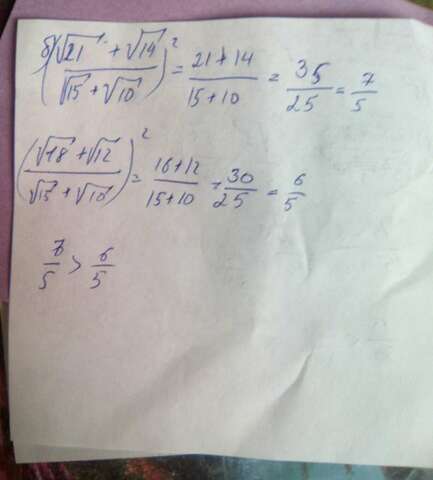 б) ((√21 + √14)/(√15 + √10))² = (21 + 14)/(15 + 10) = 35/25 = 7/5
((√18 + √12)/(√15 + √10))² = (18 + 12)/(15 + 10) = 30/25 = 6/5
7/5 > 6/5